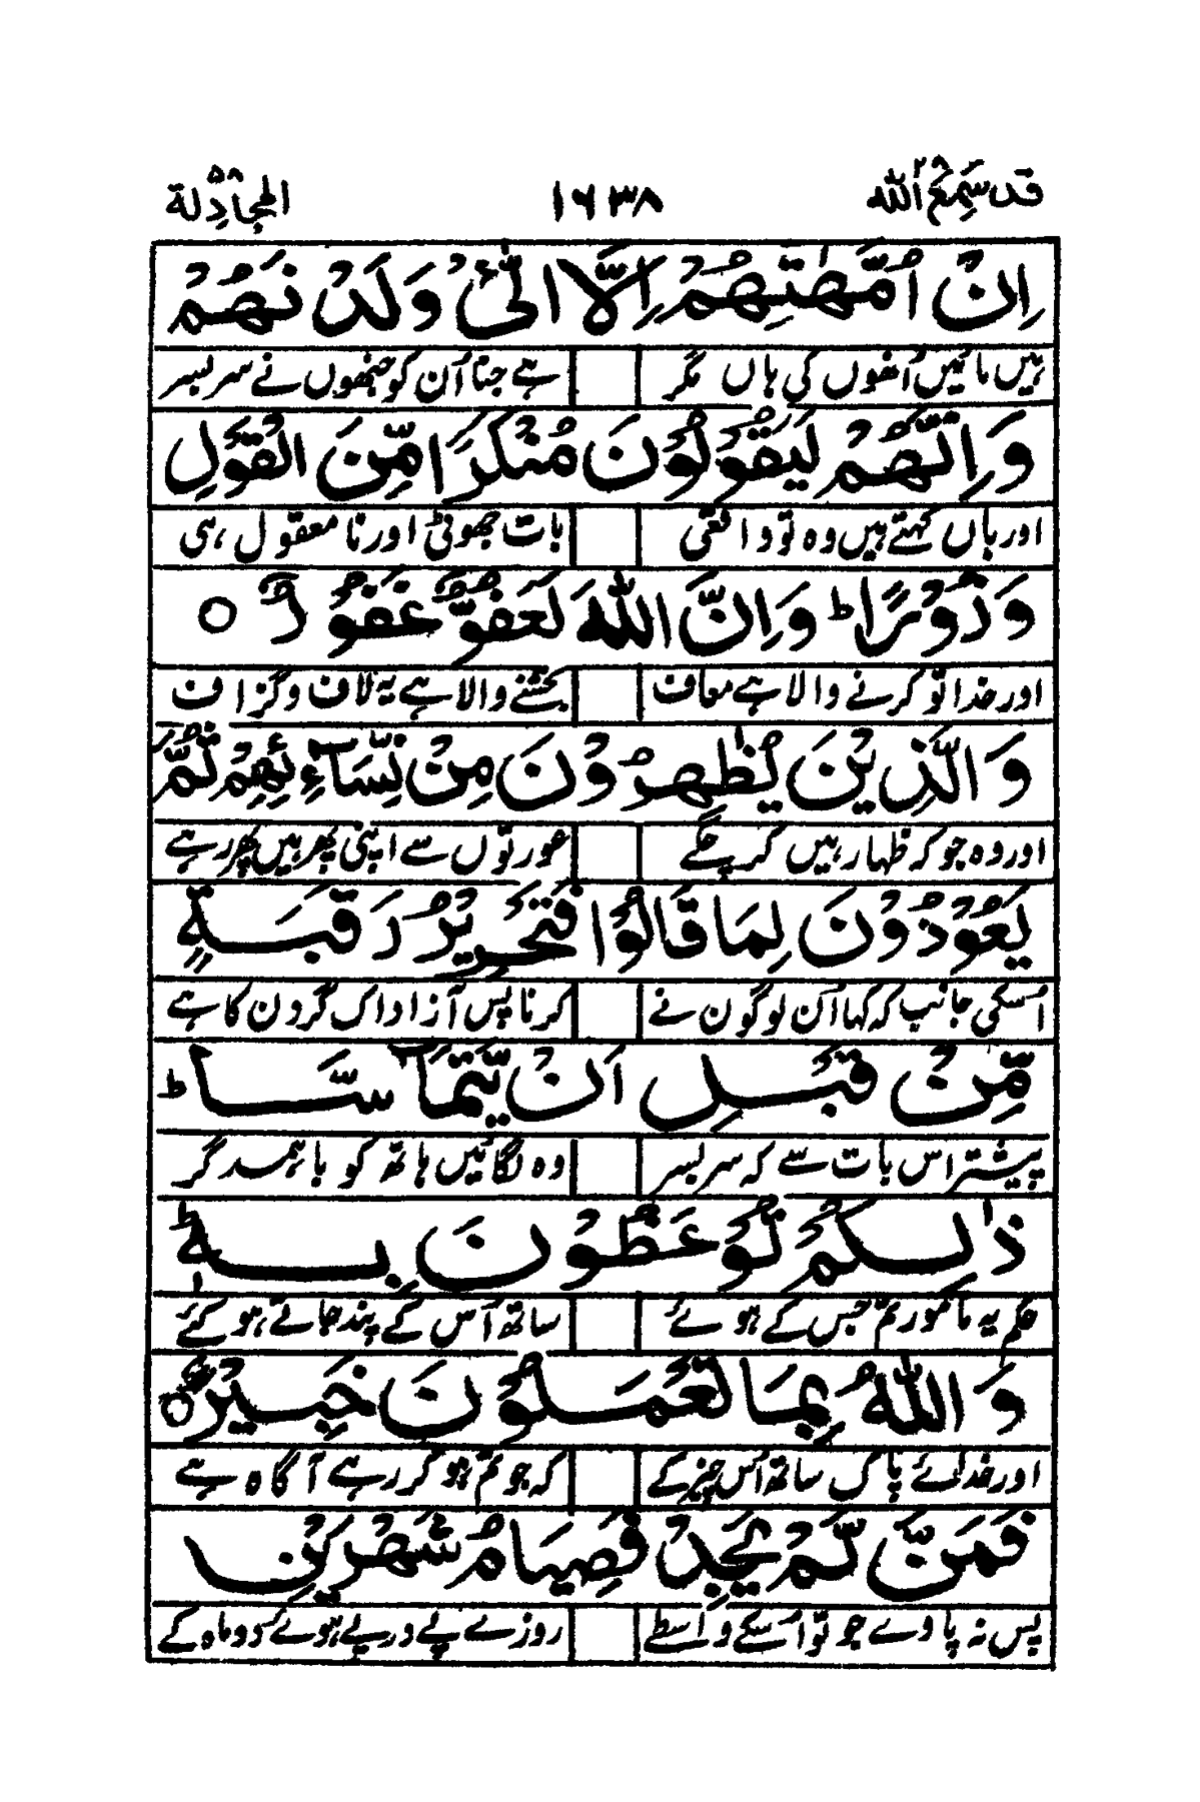 قد سمع الله ٢٨ ١٦٣٨ المجادلة ٥٨
اِنْ اُمَّهٰتُهُمْ اِلَّا الّٰٓئِیْ وَلَدْنَهُمْ
ہیں مائیں اُنھوں کی ہاں مگر ہے جنا اُن کو جنھوں نے سر بسر
وَ اِنَّهُمْ لَیَقُوْلُوْنَ مُنْكَرًا مِّنَ الْقَوْلِ
اور ہاں کہتے ہیں وہ تو واقعی بات جھوٹی اور نا معقول ہی
وَ زُوْرًا ؕ وَ اِنَّ اللّٰهَ لَعَفُوٌّ غَفُوْرٌ ○
اور خدا تو کرنے والا ہے معاف بخشنے والا ہے یہ لاف و گزاف
وَ الَّذِیْنَ یُظٰهِرُوْنَ مِنْ نِّسَآءِهِمْ ثُمَّ
اور وہ جو کہ ظہار ہیں کر چکے عورتوں سے اپنی پھر ہیں پھر رہے
یَعُوْدُوْنَ لِمَا قَالُوْا فَتَحْرِیْرُ رَقَبَةٍ
اُسکی جانب کہ کہا اُن لوگون نے کرنا پس آزاد اک گردن کا ہے
مِّنْ قَبْلِ اَنْ یَّتَمَآسَّا ؕ
پیشتر اس بات سے کہ سر بسر وہ لگائیں ہاتھ کو با ہمدگر
ذٰلِكُمْ تُوْعَظُوْنَ بِهٖ ؕ
حکم یہ مامور تم جس کے ہوئے ساتھ اُس کے پند جاتے ہو کئے
وَ اللّٰهُ بِمَا تَعْمَلُوْنَ خَبِیْرٌ ○
اور خدائے پاک ساتھ اُس چیز کے کہ جو تم ہو کر رہے آگاہ ہے
فَمَنْ لَّمْ یَجِدْ فَصِیَامُ شَهْرَیْنِ
پس نہ پاوے جو تو اُسکے واسطے روزے پے در پے ہوئے دو ماہ کے